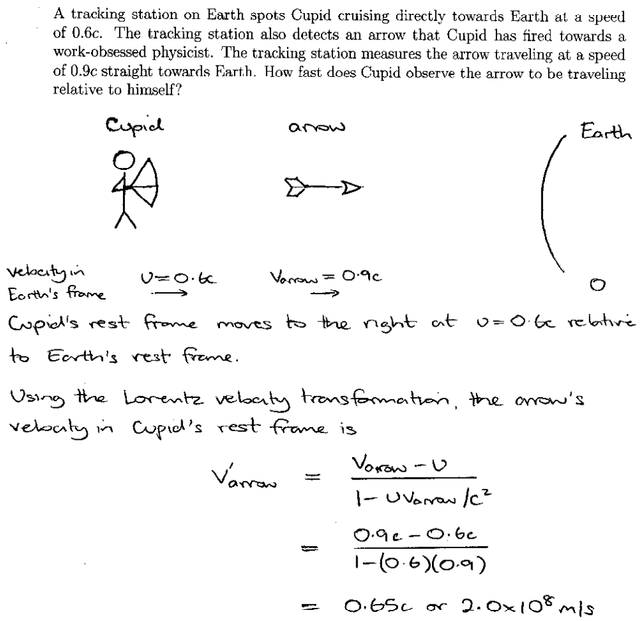 A tracking station on Earth spots Cupid cruising directly towards Earth at a speed
of 0.6c. The tracking station also detects an arrow that Cupid has fired towards a
work-obsessed physicist. The tracking station measures the arrow traveling at a speed
of 0.9c straight towards Earth. How fast does Cupid observe the arrow to be traveling
relative to himself?
Cupid arrow Earth
velocity in
Earth's frame
υ=0.6c Varrow = 0.9c O
Cupid's rest frame moves to the right at υ=0.6c relative
to Earth's rest frame.
Using the Lorentz velocity transformation, the arrow's
velocity in Cupid's rest frame is
V'arrow = Varrow - υ
1 - υVarrow/c²
= 0.9c - 0.6c
1-(0.6)(0.9)
= 0.65c or 2.0×10⁸ m/s